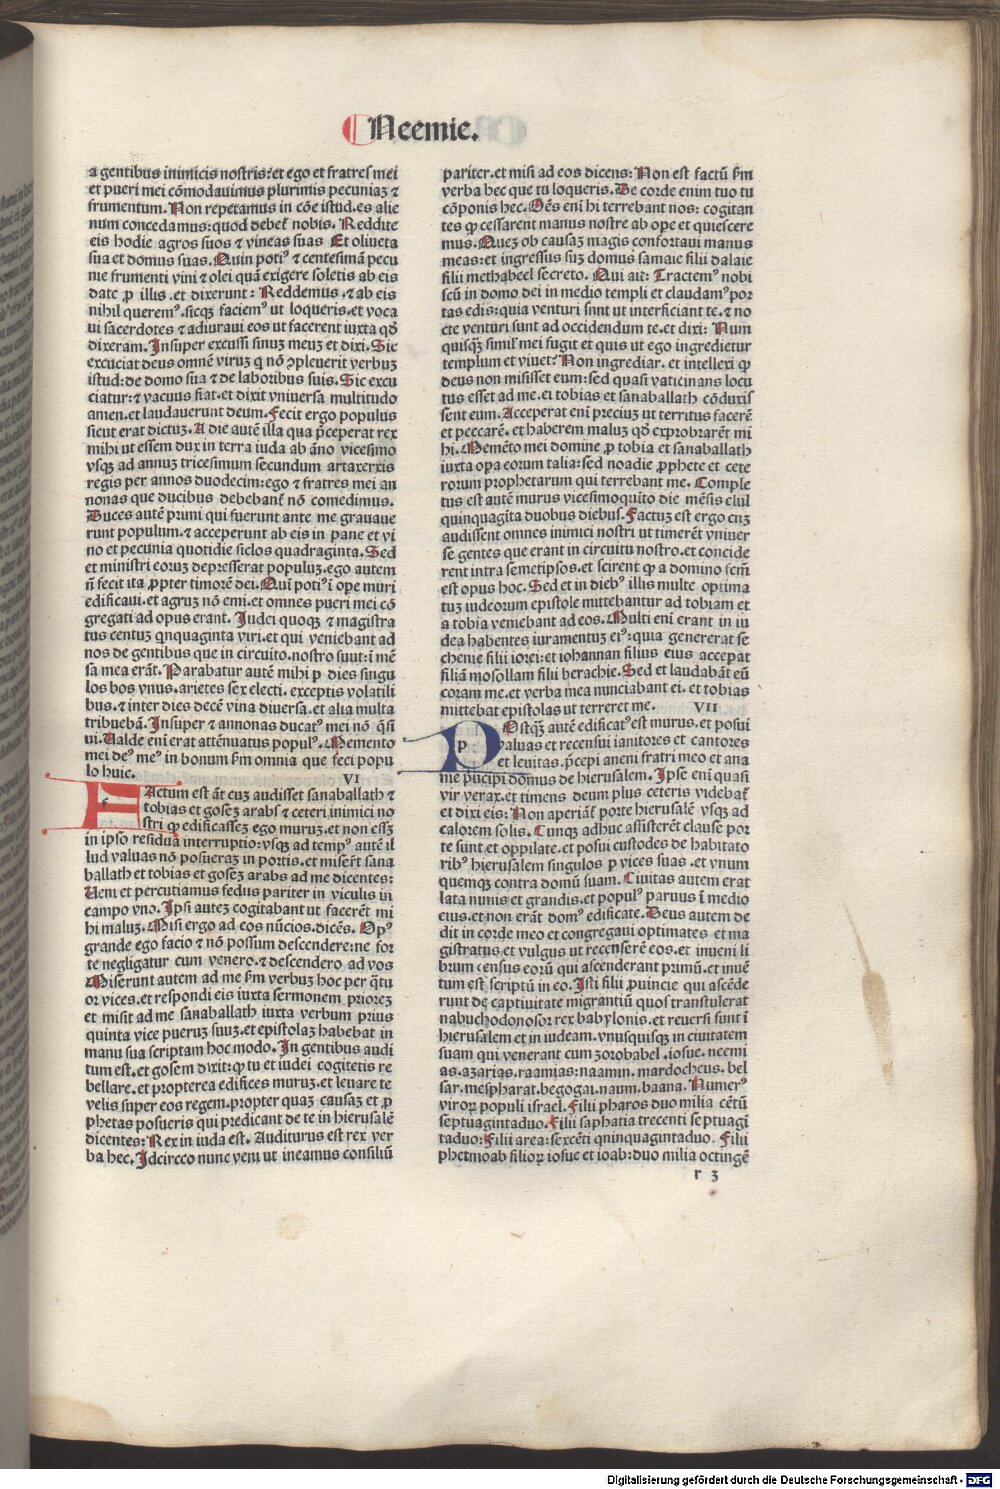 Neemie.
a gentibus inimicis nostris: et ego et fratres mei
et pueri mei cōmodauimus plurimis pecuniaꝫ ⁊
frumentum. Non repetamus in cōe istud. es alie
num concedamus: quod debeꝉ nobis. Reddite
eis hodie agros suos ⁊ vineas suas Et oliueta
sua et domus suas. Quin potiꝰ ⁊ centesimā pecu
nie frumenti vini ⁊ olei quā exigere soletis ab eis
date ꝓ illis .et dixerunt: Reddemus .⁊ ab eis
nihil queremꝰ .sicqꝫ faciemꝰ ut loqueris. et voca
ui sacerdotes ⁊ adiuraui eos ut facerent iuxta qđ
dixeram. Insuper excussi sinuꝫ meuꝫ et dixi. Sic
excuciat deus omnē viruꝫ q nō ꝯpleuerit verbuꝫ
istud: de domo sua ⁊ de laboribus suis. Sic excu
ciatur: ⁊ vacuus fiat. et dixit vniuersa multitudo
amen. et laudauerunt deum. Fecit ergo populus
sicut erat dictuꝫ. A die autē illa qua p̄ceperat rex
mihi ut essem dux in terra iuda ab āno vicesimo
vsqꝫ ad annuꝫ tricesimum secundum artaxerxis
regis per annos duodecim: ego ⁊ fratres mei an
nonas que ducibus debebanꝉ nō comedimus.
Duces autē primi qui fuerunt ante me grauaue
runt populum. ⁊ acceperunt ab eis in pane et vi
no et pecunia quotidie siclos quadraginta. Sed
et ministri eoruꝫ depresserat populuꝫ. ego autem
n̄ fecit ita ꝓpter timorē dei. Qui potiꝰ ī oꝑe muri
edificaui. et agruꝫ nō emi. et omnes pueri mei cō
gregati ad opus erant. Iudei quoqꝫ ⁊ magistra
tus centuꝫ qnquaginta viri. et qui veniebant ad
nos de gentibus que in circuitu. nostro suut: ī mē
sa mea erāt. Parabatur autē mihi ꝑ dies singu
los bos vnus. arietes sex electi. exceptis volatili
bus. ⁊ inter dies decē vina diuersa. et alia multa
tribuebā. Insuper ⁊ annonas ducatꝰ mei nō q̄si
ui. Ualde enī erat attēnuatus populꝰ. Memento
mei deꝰ meꝰ in bonum ẜm omnia que feci popu
lo huic. VI
Factum est āt cuꝫ audisset sanaballath ⁊
tobias et goseꝫ arabs ⁊ ceteri inimici no
stri ꝙ edificasseꝫ ego muruꝫ. et non essꝫ
in ipso residua interruptio: vsqꝫ ad tempꝰ autē il
lud valuas nō posueraꝫ in portis. et miserūt sana
ballath et tobias et goseꝫ arabs ad me dicentes:
Ueni et percutiamus fedus pariter in viculis in
campo vno. Ipsi auteꝫ cogitabant ut facerēt mi
hi maluꝫ. Misi ergo ad eos nūcios. dicēs. Opꝰ
grande ego facio ⁊ nō possum descendere: ne for
te negligatur cum venero. ⁊ descendero ad vos
Miserunt autem ad me ẜm verbuꝫ hoc per q̄tu
or vices. et respondi eis iuxta sermonem prioreꝫ
et misit ad me sanaballath iuxta verbum prius
quinta vice pueruꝫ suuꝫ. et epistolaꝫ habebat in
manu sua scriptam hoc modo. In gentibus audi
tum est. et gosem dixit: ꝙ tu et iudei cogitetis re
bellare. et propterea edifices muruꝫ. et leuare te
velis super eos regem. propter quaꝫ causaꝫ et ꝓ
phetas posueris qui predicant de te in hierusalē
dicentes: Rex in iuda est. Auditurus est rex ver
ba hec. Idcirco nunc veni ut ineamus consiliū
pariter. et misi ad eos dicens: Non est factū ẜm
verba hec que tu loqueris. De corde enim tuo tu
cōponis hec. Oēs enī hi terrebant nos: cogitan
tes ꝙ cessarent manus nostre ab oꝑe et quiescere
mus. Queꝫ ob causaꝫ magis confortaui manus
meas: et ingressus suꝫ domus samaie filii dalaie
filii methabeel secreto. Qui ait: Tractemꝰ nobi
scū in domo dei in medio templi et claudamꝰ por
tas edis: quia venturi sunt ut interficiant te. ⁊ no
cte venturi sunt ad occidendum te. et dixi: Num
quisqꝫ simil' mei fugit et quis ut ego ingredietur
templum et viuet? Non ingrediar. et intellexi ꝙ
deus non misisset eum: sed quasi vaticinans locu
tus esset ad me. ei tobias et sanaballath cōduxis
sent eum. Acceperat enī preciuꝫ ut territus facerē
et peccarē. et haberem maluꝫ qđ exprobrarēt mi
hi. Memēto mei domine ꝓ tobia et sanaballath
iuxta oꝑa eorum talia: sed noadie ꝓphete et cete
rorum prophetarum qui terrebant me. Comple
tus est autē murus vicesimoquīto die mēsis elul
quinquagīta duobus diebus. Factuꝫ est ergo cuꝫ
audissent omnes inimici nostri ut timerēt vniuer
se gentes que erant in circuitu nostro. et concide
rent intra semetipsos. et scirent ꝙ a domino fcm̄
est opus hoc. Sed et in diebꝰ illis multe optima
tuꝫ iudeorum epistole mittebantur ad tobiam et
a tobia veniebant ad eos. Multi enī erant in iu
dea habentes iuramentuꝫ eiꝰ: quia genererat se
chenie filii iorei: et iohannan filius eius accepat
filiā mosollam filii berachie. Sed et laudabāt eū
coram me. et verba mea nunciabant ei. et tobias
mittebat epistolas ut terreret me. VII
Postqꝫ autē edificatꝰ est murus. et posui
valuas et recensui ianitores et cantores
et leuitas. p̄cepi aneni fratri meo et ana
nie pūcipi domus de hierusalem. Ipse enī quasi
vir verax. et timens deum plus ceteris videbaꝉ
et dixi eis: Non aperianꝉ porte hierusalē vsqꝫ ad
calorem solis. Cunqꝫ adhuc assisterēt clause por
te sunt et oppilate. et posui custodes de habitato
ribꝰ hierusalem singulos ꝑ vices suas. et vnum
quemqꝫ contra domū suam. Ciuitas autem erat
lata nimis et grandis. et populꝰ paruus ī medio
eius. et non erāt domꝰ edificate. Deus autem de
dit in corde meo et congregaui optimates et ma
gistratus et vulgus ut recenserē eos. et inueni li
brum census eorū qui ascenderant primū. et inuē
tum est scriptū in eo. Isti filii ꝓuincie qui ascēde
runt de captiuitate migrantiū quos transtulerat
nabuchodonosor rex babylonis. et reuersi sunt ī
hierusalem et in iudeam. vnusquisqꝫ in ciuitatem
suam qui venerant cum zorobabel .iosue. neemi
as. azarias. raamias: naamin. mardocheus. bel
sar. mespharat. begogai. naum. baana. Numerꝰ
viroꝝ populi israel. Filii pharos duo milia cētū
septuagintaduo. Filii saphatia trecenti septuagī
taduo: Filii area: sexcēti qninquagintaduo. Filii
phetmoab filioꝝ iosue et ioab: duo milia octingē
r 3
Digitalisierung gefördert durch die Deutsche Forschungsgemeinschaft - DFG